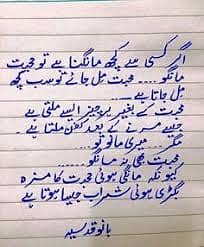 اگر کسی سے کچھ مانگنا ہے تو محبت
مانگو..... محبت مل جائے تو سب کچھ
مل جاتا ہے.....
محبت کے بغیر ہر چیز ایسے ملتی ہے
جیسے مرنے کے بعد کفن ملتا ہے۔
مگر... میری مانو تو
محبت بھی نہ مانگو.....
کیونکہ مانگی ہوئی محبت کا مزہ
بگڑی ہوئی شراب جیسا ہوتا ہے
بانو قدسیہ